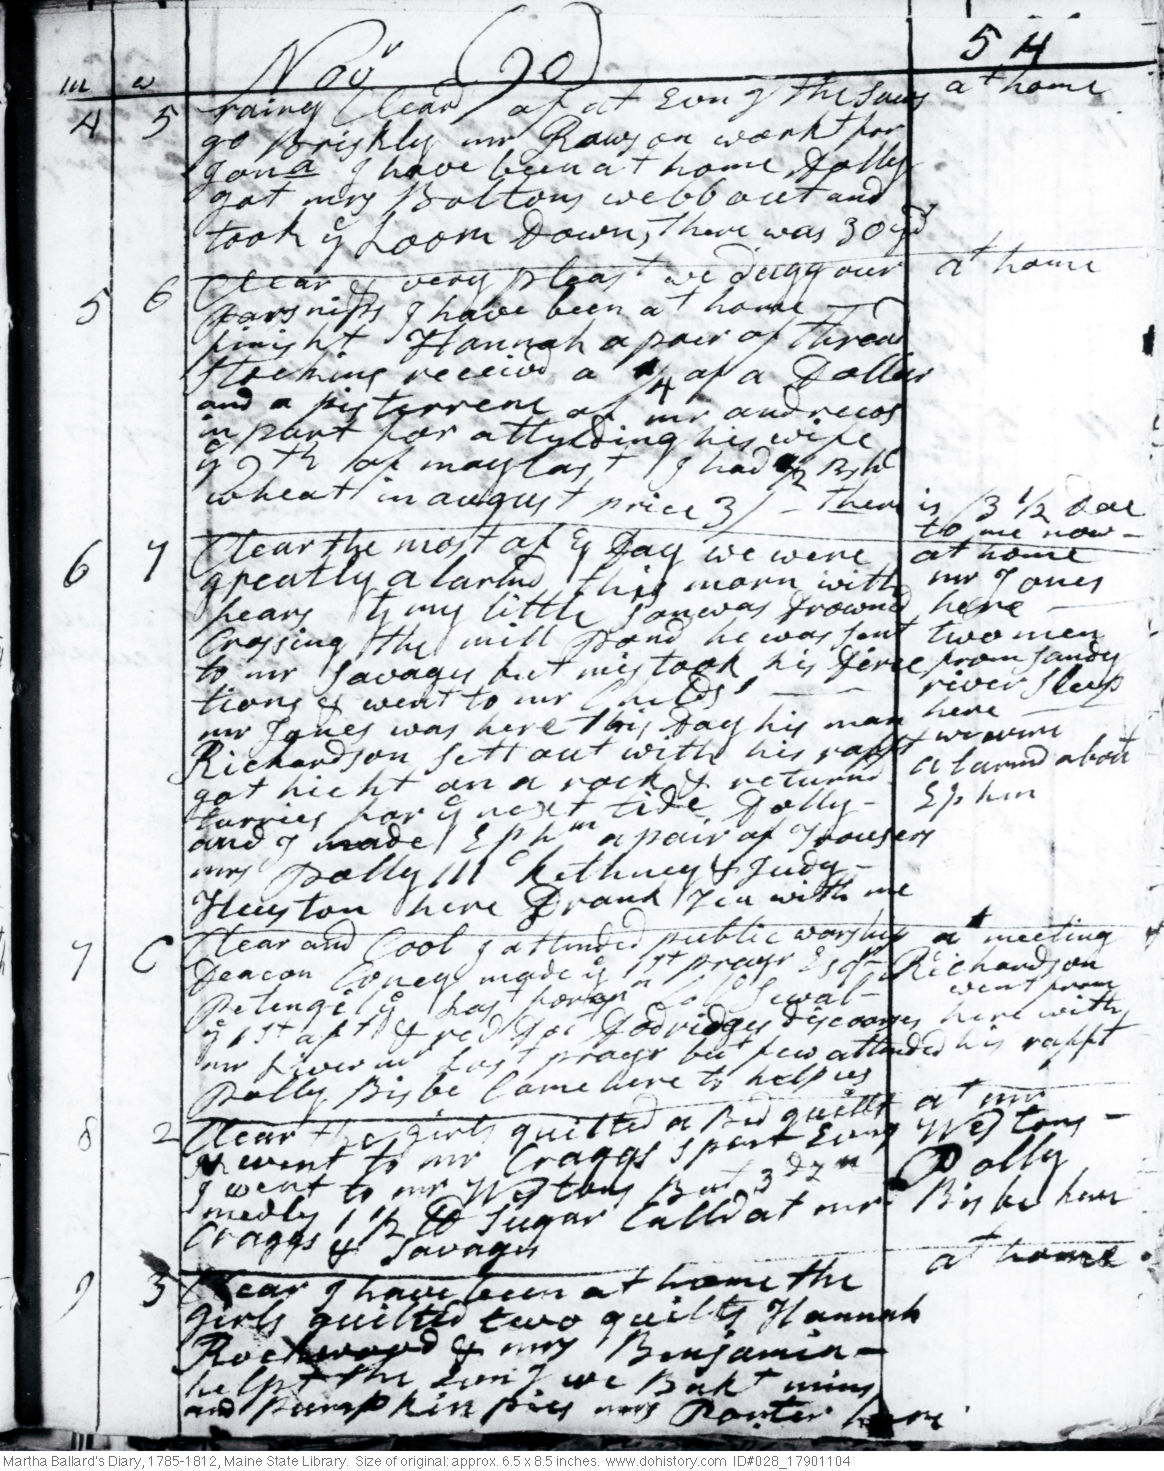 Novr (90) 54
m w
4 5 rainy Clear of at Evng the saws at home
go Briskly mr Rawson workt for
Jona I have been at home Dolly
got mrs Boltons webb out and
took ye Loom Down, there was 30 yd
5 6 Clear & very pleast we dugg our at home
parsnips I have been at home I
finisht Hannah a pair of thread
Stockins receivd a 1/4 of a Dollar
and a pisterrene of mr andrews
in part for attending his wife
ye 9th of may last I had 1/2 Bsh
wheat in august price 3/ - there is /3 1/2 due
to me now -
6 7 Clear the most of ye Day we were at home
greatly alarmd this morn with mr Jones
fears yt my little son was Drownd here
Crossing the mill pond he was sent two men
to mr Savages but mistook his Direc from Sandy
tions & went to mr Childs' river sleep
mr Jones was here this Day his man here
Richardson sett out with his raft we were
got hicht on a rock & returnd alarmd about
tarries for ye next tide Dolly - Ephm
and I made Ephm a pair of Trousers
mrs Polly Mc Kethney & Judy
Heuston here Drank Tea with me
7 C Clear and Cool I attended public worship at meeting
Deacon Coney made ye 1st prayr Esqr Richardson
Petengil ye last foren Coll Sewal went from
ye 1st aft & red Doct Dodridges discourses here with
mr Livermr last prayr but few attended his rafft
Polly Bisbe Came here to help us
8 2 Clear the girls quilted a Bed quillt at mr
& went to mr Craggs spent Evng Westons -
I went to mr Westons But 3 dzn Polly
medls 1 1/2 lb Sugar Calld at mr Bisbe here
Craggs & Savages
9 3 Clear I have been at home the at home
girls quilted two quilts Hannah
Rockwood & mrs Benjamin
helpt the Evng we Bakt mins
and pumpkin pies mrs Porter here
Martha Ballard's Diary, 1785-1812, Maine State Library. Size of original: approx. 6.5 x 8.5 inches. www.dohistory.com ID#028_17901104